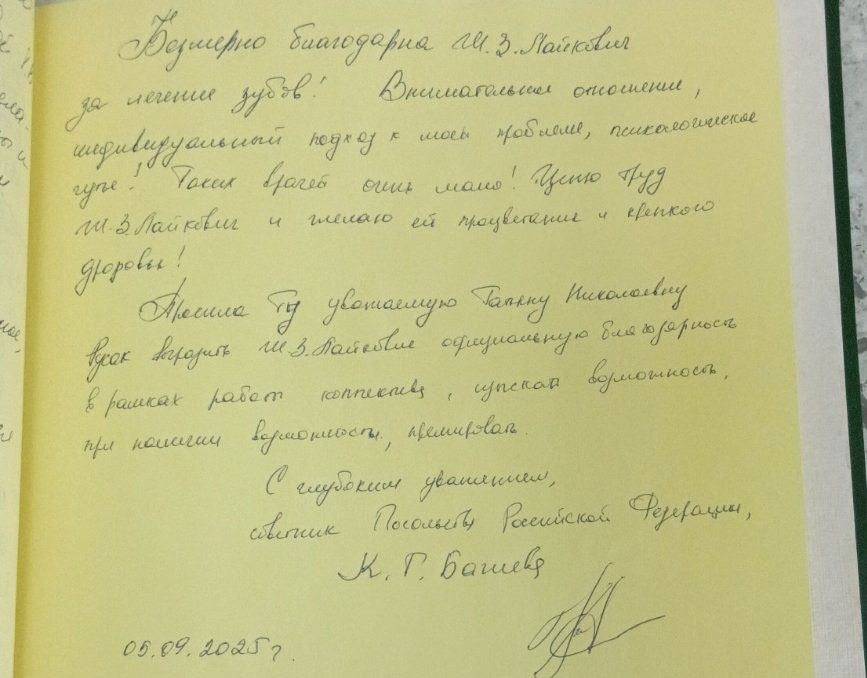 Безмерно благодарна Ш.З.Лайкович
за лечение зубов! Внимательное отношение,
индивидуальный подход к моей проблеме, психологическое
! Таких врачей очень мало! Ценю труд
Ш.З.Лайкович и желаю ей процветания и крепкого
здоровья!
Просила уважаемую Татьяну Николаевну
выразить Ш.З.Лайкович официальную благодарность
в рамках работы коллектива, изыскать возможность,
при наличии возможности, премировать.
С глубоким уважением,
советник Посольства Российской Федерации,
К.Г.
05.09.2025г.